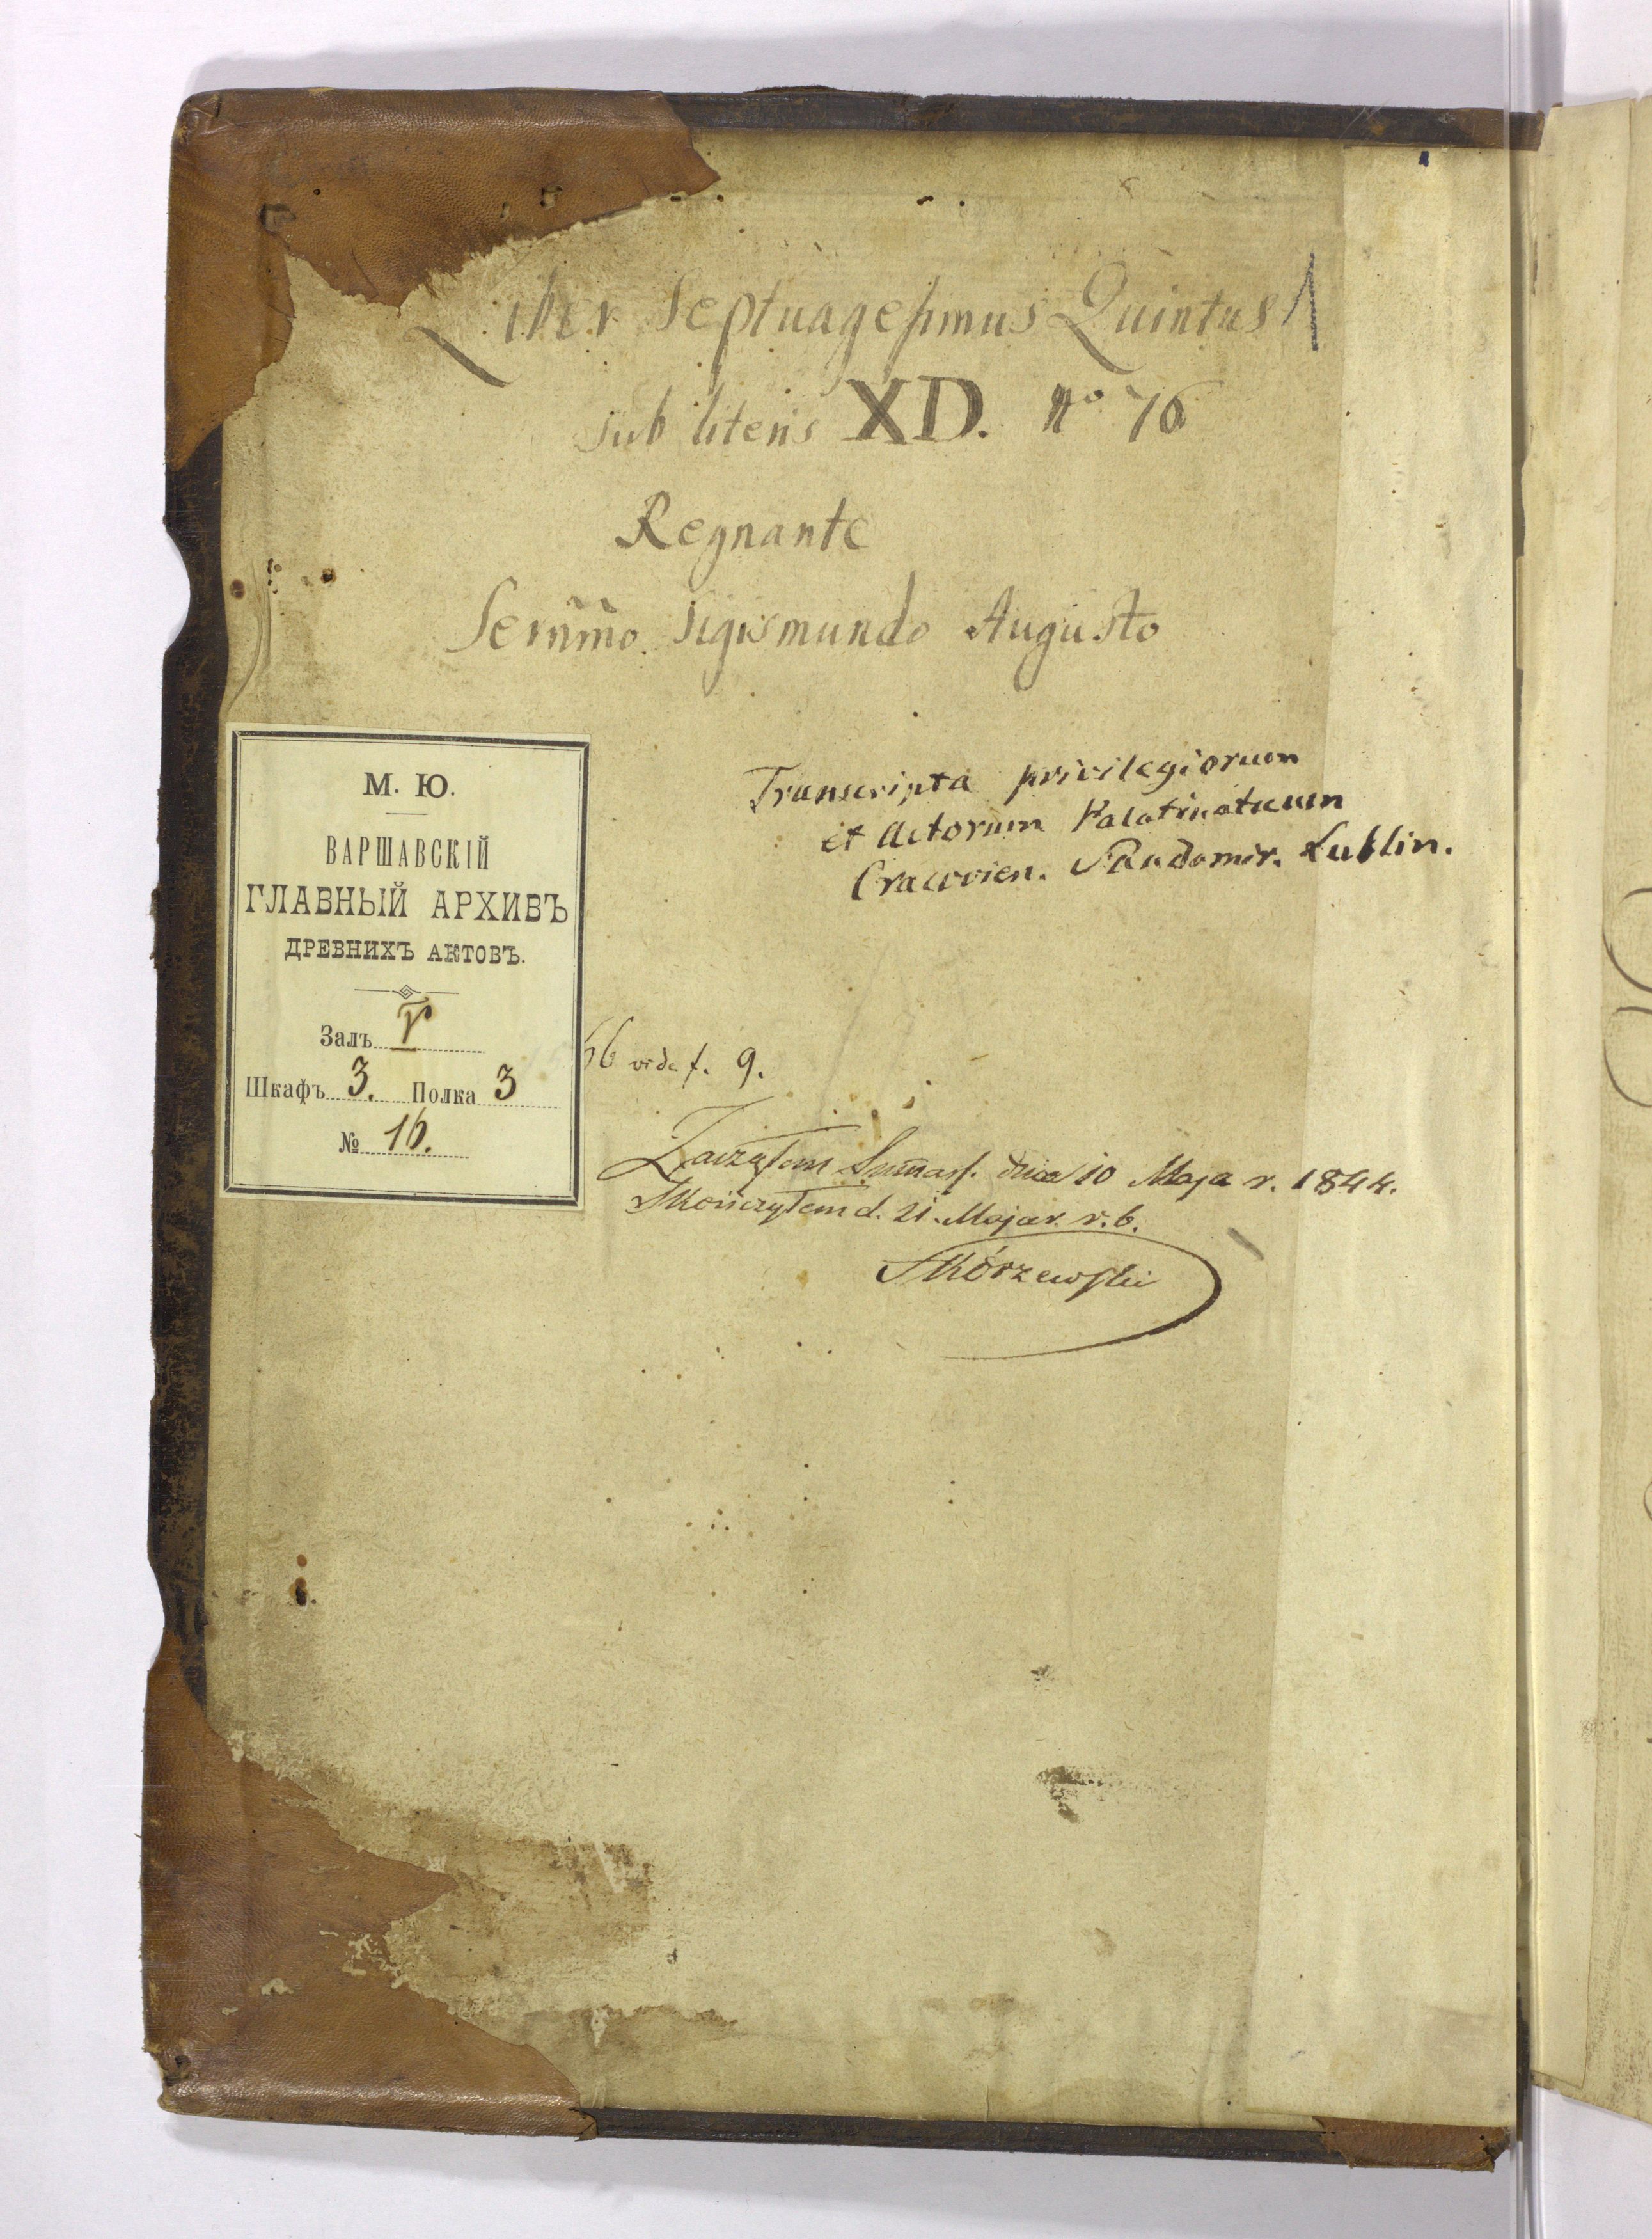 Liber Septuagesimus Quintus
sub literis XD. No 76
Regnante
Serñmo. Sigismundo Augusto
Transcripta privilegiorum
et Actorum Palatinatuum
Cracovien. Sandomir. Lublin.
М. Ю.
ВАРШАВСКІЙ
ГЛАВНЫЙ АРХИВЪ
ДРЕВНИХЪ АКТОВЪ.
Залъ
Шкафъ 3. Полка 3
№ 16.
vide f. 9.
Zacząłem Sum̃arj. dnia 10 Maja r. 1844.
Skończyłem d. 21. Maja r. b.
Skórzewski